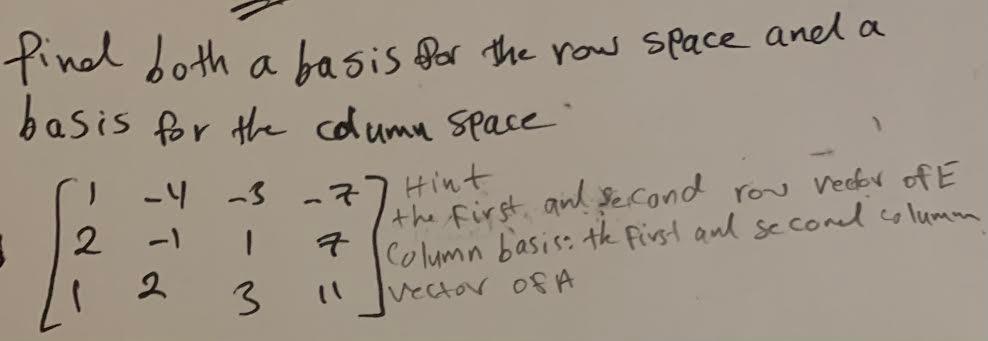 find both a basis for the row space and a
basis for the column space
1 -4 -3 -7 Hint
the First and second row vector of E
2 -1 1 7 Column basis: the first and second column
1 2 3 11 vector of A